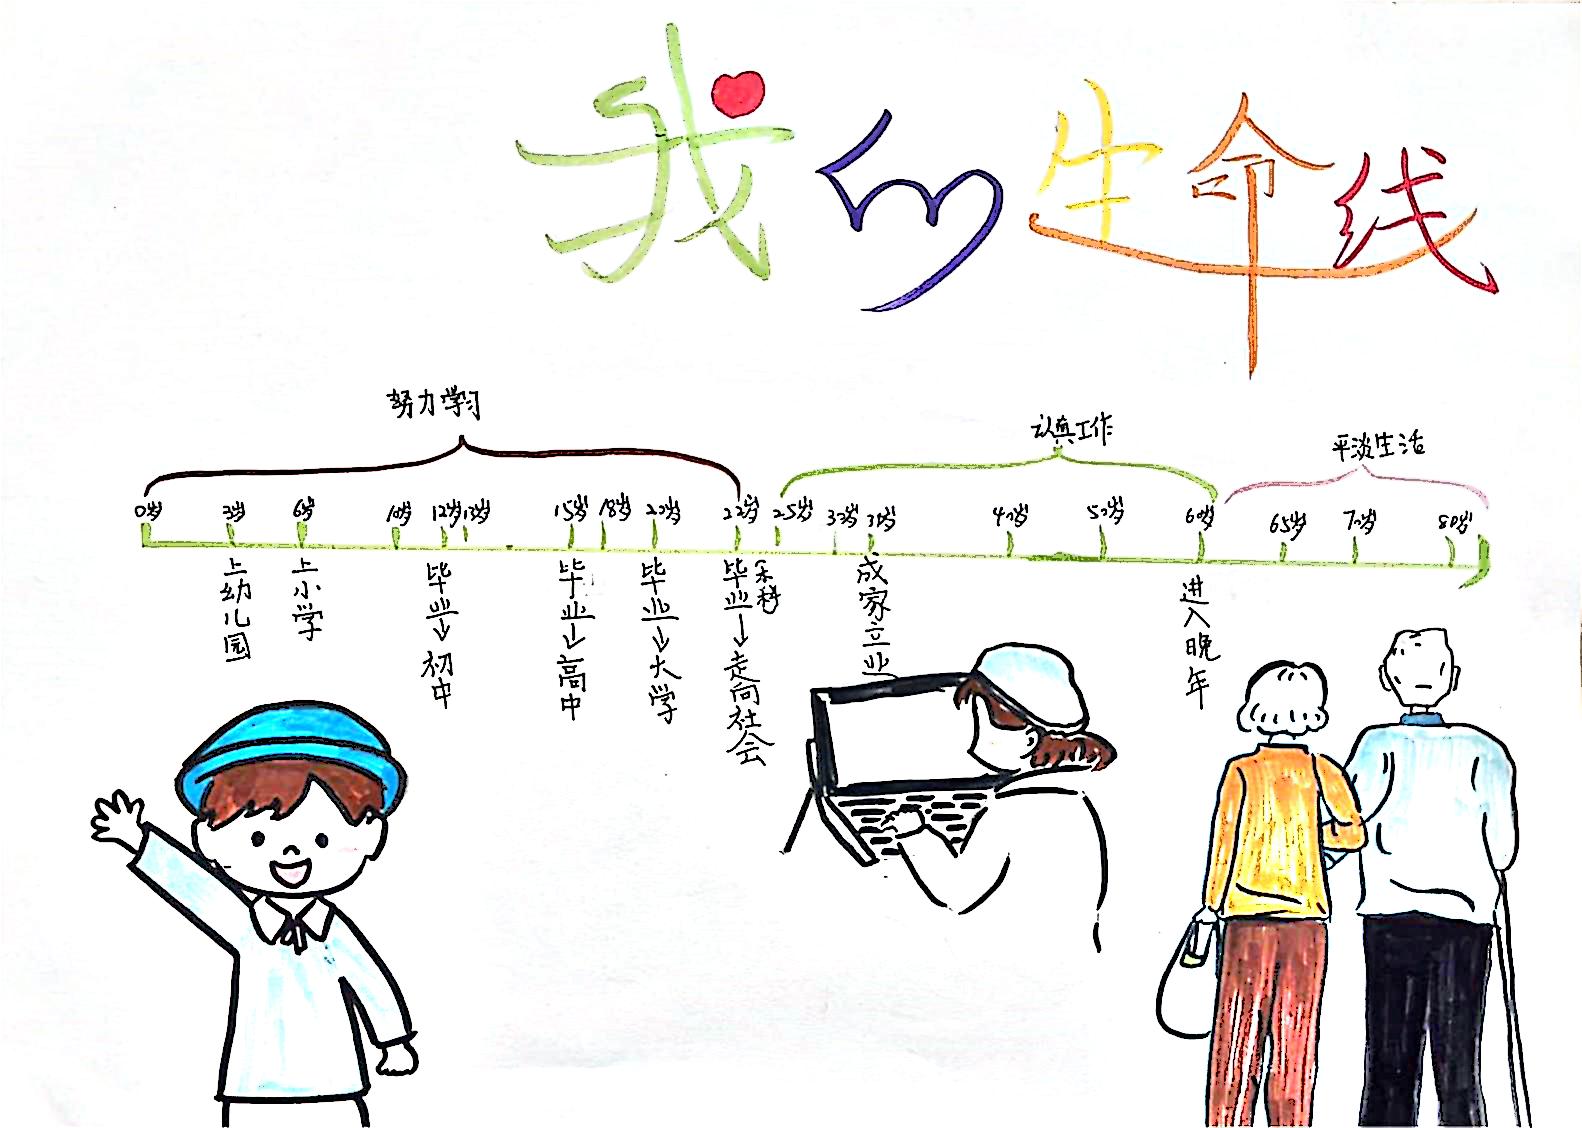 我的生命线
努力学习
认真工作
平淡生活
0岁 3岁 6岁 10岁 12岁 13岁 15岁 18岁 20岁 22岁 25岁 30岁 40岁 50岁 60岁 65岁 70岁 80岁
上幼儿园
上小学
毕业→初中
毕业→高中
毕业→大学
毕业→走向社会
本科
成家立业
进入晚年